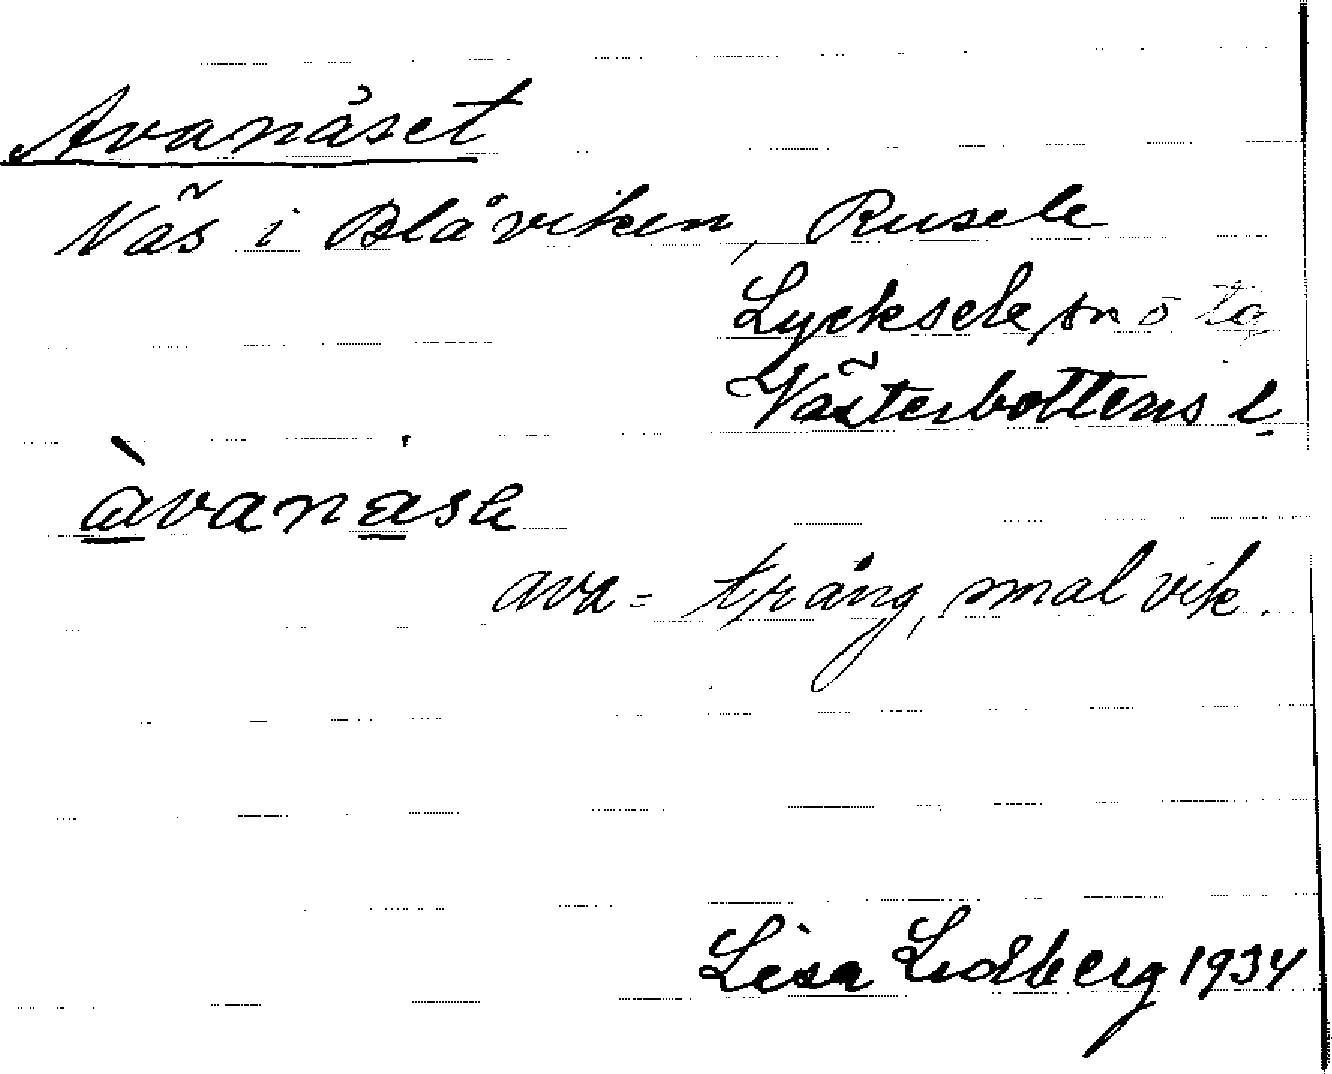 Avanäset
Näs i Blåviken, Rusele
Lycksele sn o tg
Västerbottens l.
àvanáse
ava = trång, smal vik.
Lisa Lidberg 1934